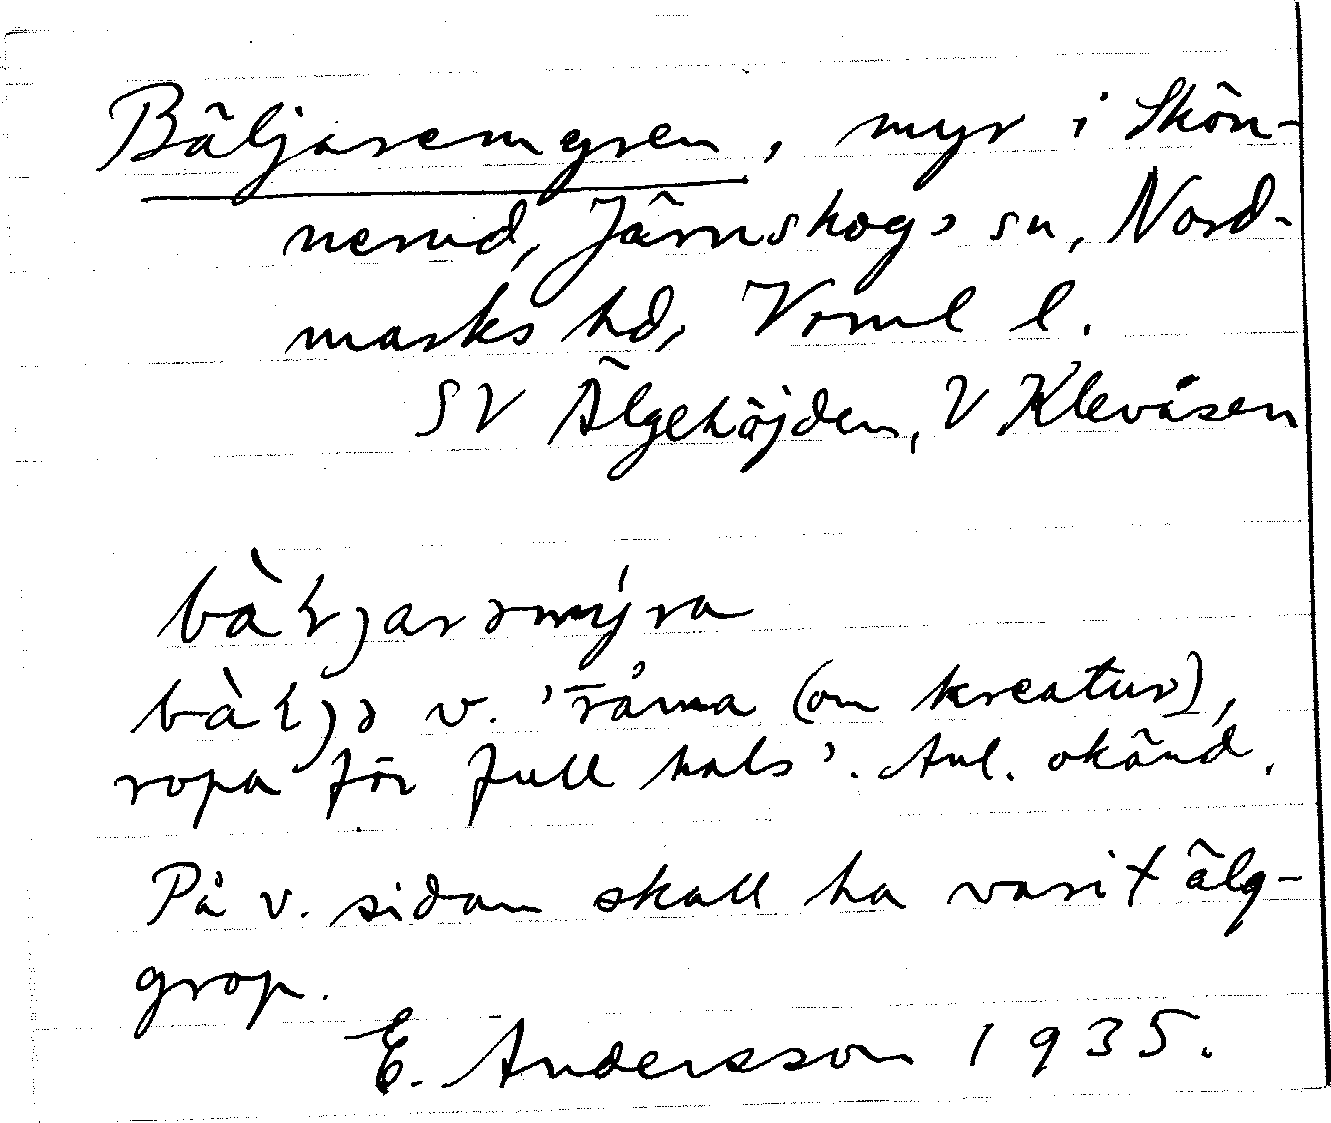 Bäljaremyren, myr i Skön-
nerud, Järnskogs sn, Nord-
marks hd, Vrml l.
SV Älgehöjden, V Klevåsen
v. 'råma (om kreatur),
ropa för full hals'. Anl. okänd.
På v. sidan skall ha varit älg-
grop.
E. Andersson 1935.